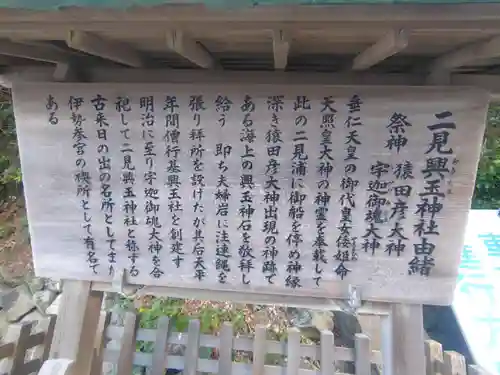 二見興玉神社由緒
祭神 猿田彦大神
宇迦御魂大神
垂仁天皇の御代皇女倭姫命
天照皇大神の神霊を奉戴して
此の二見浦に御船を停め神縁
深き猿田彦大神出現の神跡で
ある海上の興玉神石を敬拝し
給う 即ち夫婦岩に注連縄を
張り拝所を設けたが其后文
年間僧行基興玉社を創建す
明治に至り宇迦御魂大神を合
祀して二見興玉神社と称する
古来日の出の名所としてまた
伊勢参宮の禊所として有名で
ある